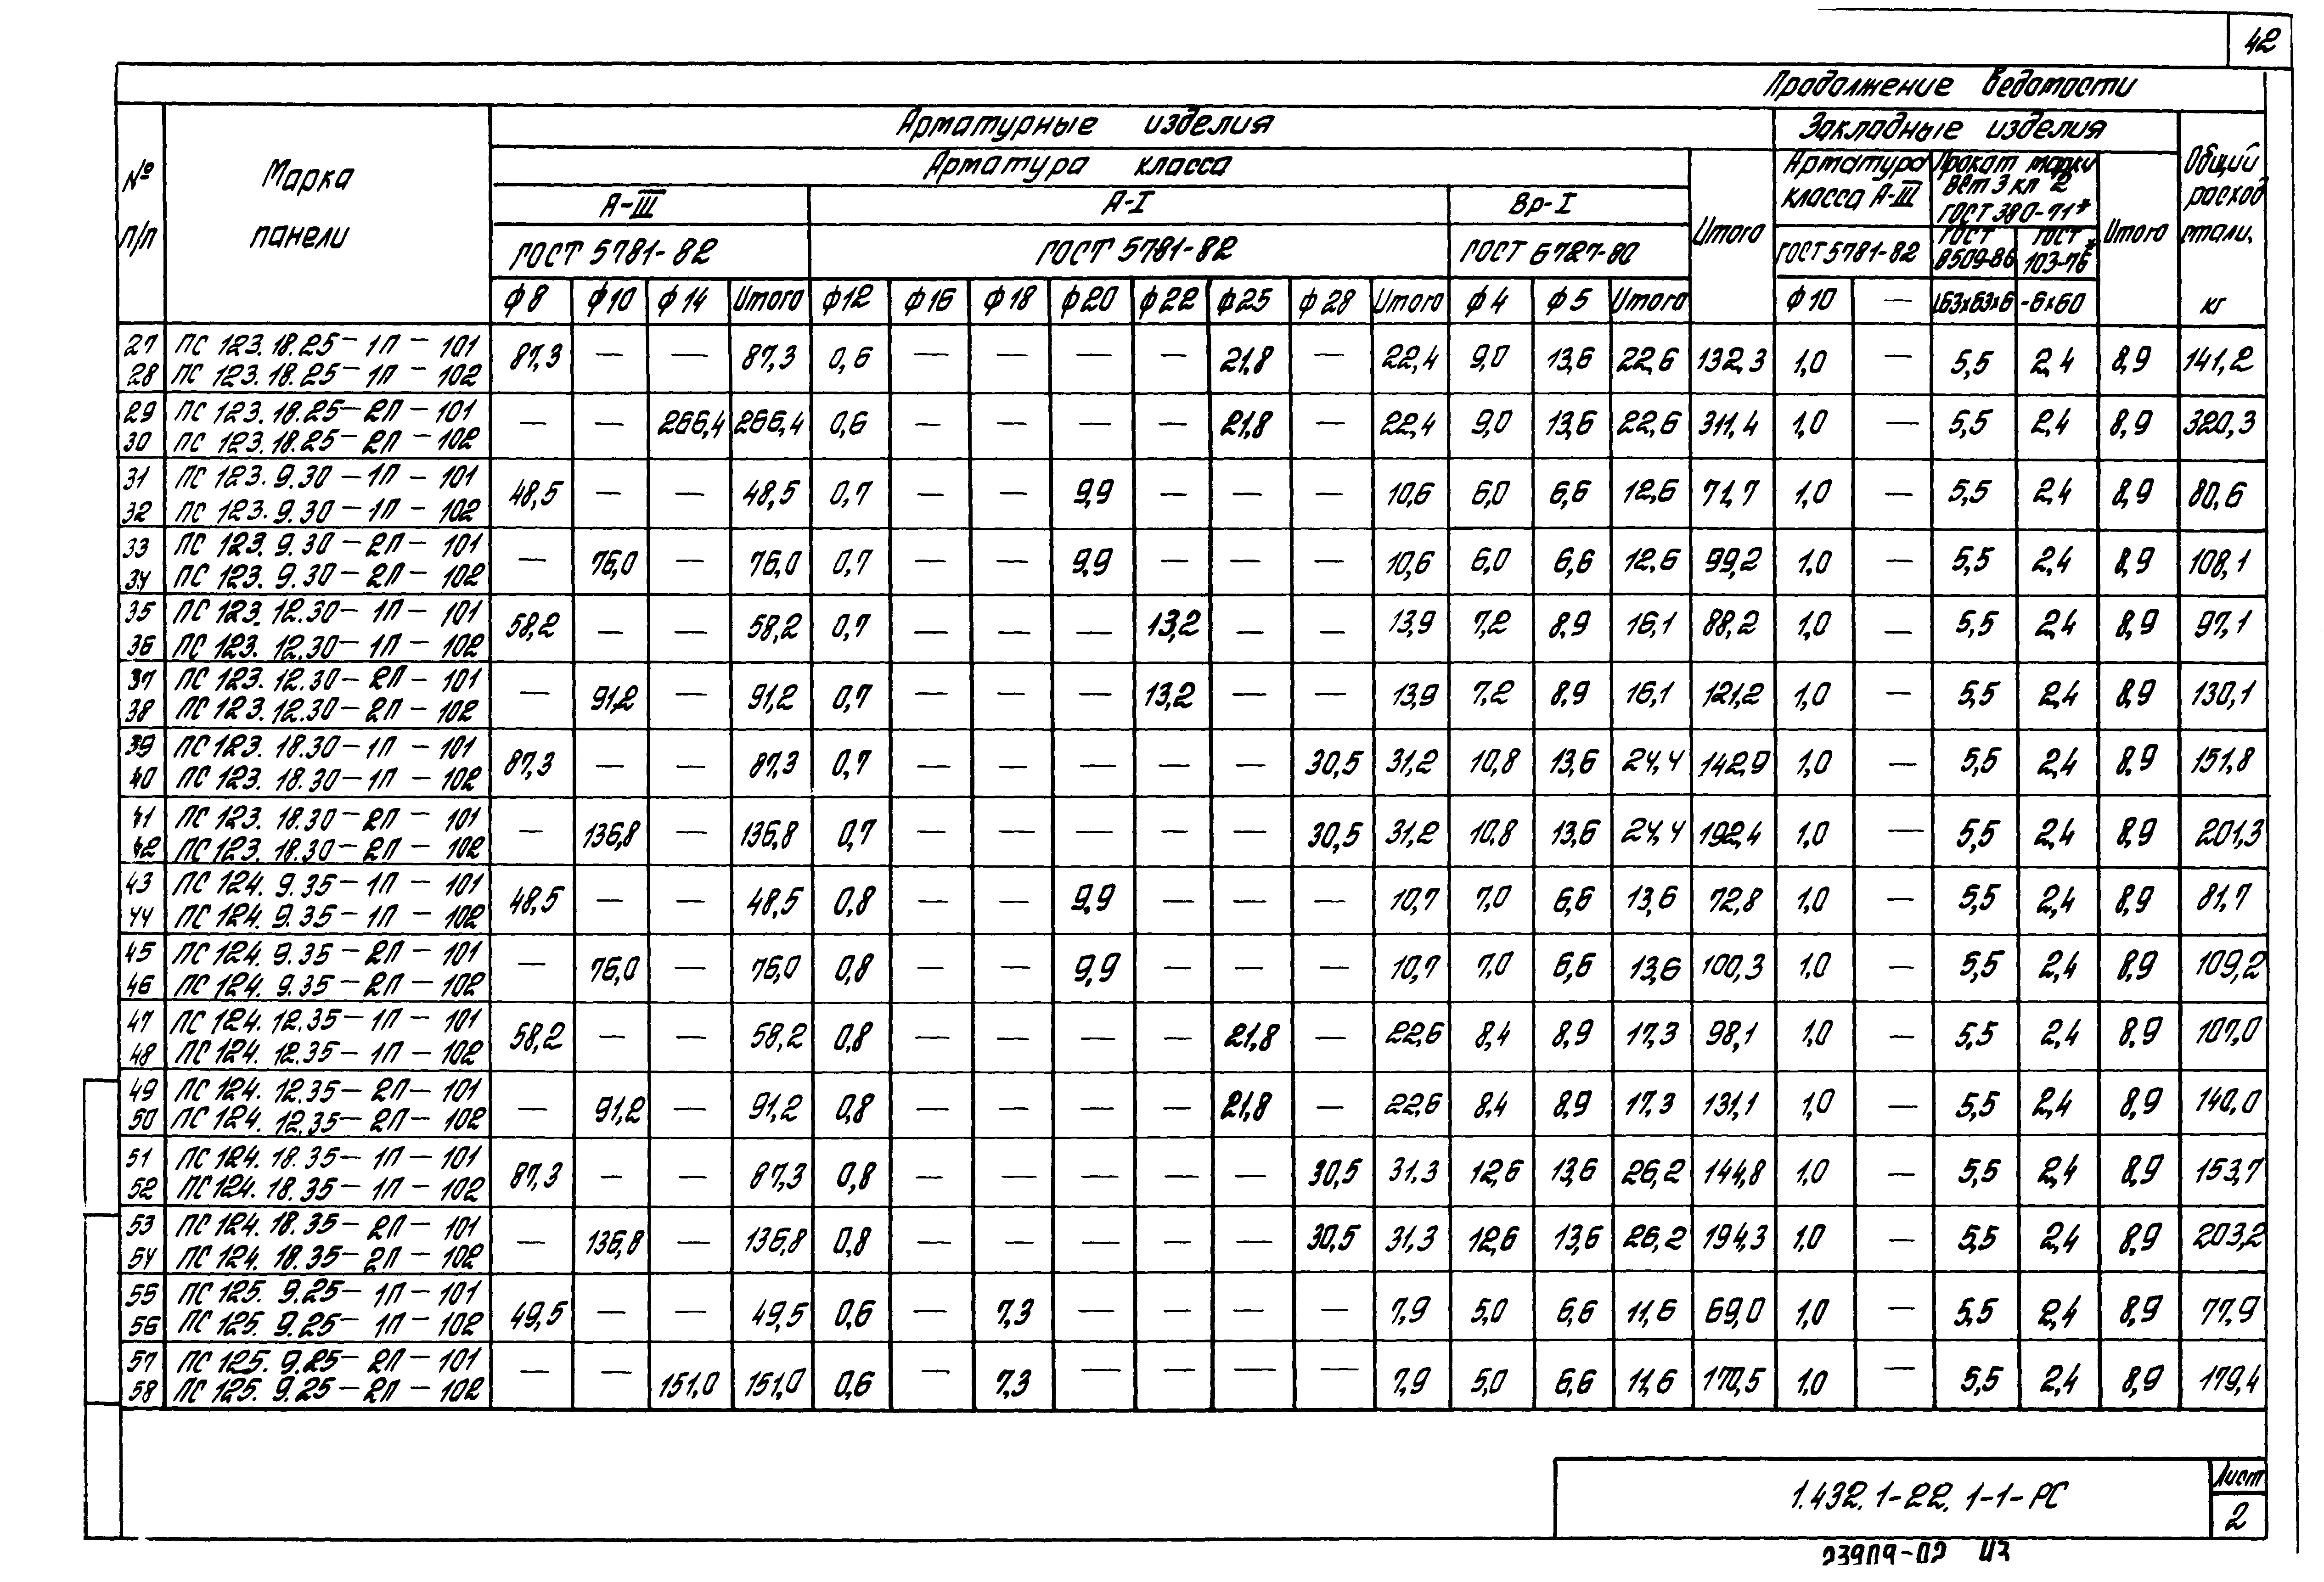 42
Продолжение ведомости
№ п/п
Марка панели
Арматурные изделия
Закладные изделия
Общий расход стали, кг
Арматура класса
Итого
Арматура класса А-III
Прокат марки ВСт 3 кп 2 ГОСТ 380-71*
Итого
А-III
А-I
Вр-I
ГОСТ 5781-82
ГОСТ 5781-82
ГОСТ 6727-80
ГОСТ 5781-82
ГОСТ 8509-86
ГОСТ 103-76*
ф8 ф10 ф14 Итого ф12 ф16 ф18 ф20 ф22 ф25 ф28 Итого ф4 ф5 Итого ф10 — L63х63х6 -6х60
27 ПС 123.18.25-1П-101
28 ПС 123.18.25-1П-102
87,3 — — 87,3 0,6 — — — — 21,8 — 22,4 9,0 13,6 22,6 132,3 1,0 — 5,5 2,4 8,9 141,2
29 ПС 123.18.25-2П-101
30 ПС 123.18.25-2П-102
— — 266,4 266,4 0,6 — — — — 21,8 — 22,4 9,0 13,6 22,6 311,4 1,0 — 5,5 2,4 8,9 320,3
31 ПС 123.9.30-1П-101
32 ПС 123.9.30-1П-102
48,5 — — 48,5 0,7 — — 9,9 — — — 10,6 6,0 6,6 12,6 71,7 1,0 — 5,5 2,4 8,9 80,6
33 ПС 123.9.30-2П-101
34 ПС 123.9.30-2П-102
— 76,0 — 76,0 0,7 — — 9,9 — — — 10,6 6,0 6,6 12,6 99,2 1,0 — 5,5 2,4 8,9 108,1
35 ПС 123.12.30-1П-101
36 ПС 123.12.30-1П-102
58,2 — — 58,2 0,7 — — — 13,2 — — 13,9 7,2 8,9 16,1 88,2 1,0 — 5,5 2,4 8,9 97,1
37 ПС 123.12.30-2П-101
38 ПС 123.12.30-2П-102
— 91,2 — 91,2 0,7 — — — 13,2 — — 13,9 7,2 8,9 16,1 121,2 1,0 — 5,5 2,4 8,9 130,1
39 ПС 123.18.30-1П-101
40 ПС 123.18.30-1П-102
87,3 — — 87,3 0,7 — — — — — 30,5 31,2 10,8 13,6 24,4 142,9 1,0 — 5,5 2,4 8,9 151,8
41 ПС 123.18.30-2П-101
42 ПС 123.18.30-2П-102
— 136,8 — 136,8 0,7 — — — — — 30,5 31,2 10,8 13,6 24,4 192,4 1,0 — 5,5 2,4 8,9 201,3
43 ПС 124.9.35-1П-101
44 ПС 124.9.35-1П-102
48,5 — — 48,5 0,8 — — 9,9 — — — 10,7 7,0 6,6 13,6 72,8 1,0 — 5,5 2,4 8,9 81,7
45 ПС 124.9.35-2П-101
46 ПС 124.9.35-2П-102
— 76,0 — 76,0 0,8 — — 9,9 — — — 10,7 7,0 6,6 13,6 100,3 1,0 — 5,5 2,4 8,9 109,2
47 ПС 124.12.35-1П-101
48 ПС 124.12.35-1П-102
58,2 — — 58,2 0,8 — — — — 21,8 — 22,6 8,4 8,9 17,3 98,1 1,0 — 5,5 2,4 8,9 107,0
49 ПС 124.12.35-2П-101
50 ПС 124.12.35-2П-102
— 91,2 — 91,2 0,8 — — — — 21,8 — 22,6 8,4 8,9 17,3 131,1 1,0 — 5,5 2,4 8,9 140,0
51 ПС 124.18.35-1П-101
52 ПС 124.18.35-1П-102
87,3 — — 87,3 0,8 — — — — — 30,5 31,3 12,6 13,6 26,2 144,8 1,0 — 5,5 2,4 8,9 153,7
53 ПС 124.18.35-2П-101
54 ПС 124.18.35-2П-102
— 136,8 — 136,8 0,8 — — — — — 30,5 31,3 12,6 13,6 26,2 194,3 1,0 — 5,5 2,4 8,9 203,2
55 ПС 125.9.25-1П-101
56 ПС 125.9.25-1П-102
49,5 — — 49,5 0,6 — 7,3 — — — — 7,9 5,0 6,6 11,6 69,0 1,0 — 5,5 2,4 8,9 77,9
57 ПС 125.9.25-2П-101
58 ПС 125.9.25-2П-102
— — 151,0 151,0 0,6 — 7,3 — — — — 7,9 5,0 6,6 11,6 170,5 1,0 — 5,5 2,4 8,9 179,4
1.432.1-22.1-1-РС
Лист
2
23909-02 43